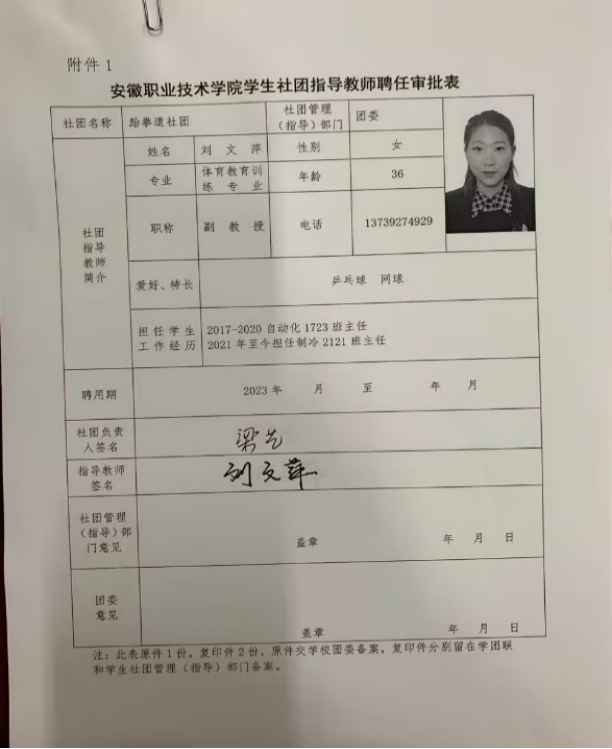 附件 1
安徽职业技术学院学生社团指导教师聘任审批表
社团名称 跆拳道社团 社团管理（指导）部门 团委
社团指导教师简介
姓名 刘文萍 性别 女
专业 体育教育训练专业 年龄 36
职称 副教授 电话 13739274929
爱好、特长 乒乓球 网球
担任学生工作经历
2017-2020 自动化 1723 班主任
2021 年至今担任制冷 2121 班主任
聘用期 2023 年 月 至 年 月
社团负责人签名 梁
指导教师签名 刘文萍
社团管理（指导）部门意见 盖章 年 月 日
团委意见 盖章 年 月 日
注：此表原件 1 份，复印件 2 份，原件交学校团委备案，复印件分别留在学团联
和学生社团管理（指导）部门备案。